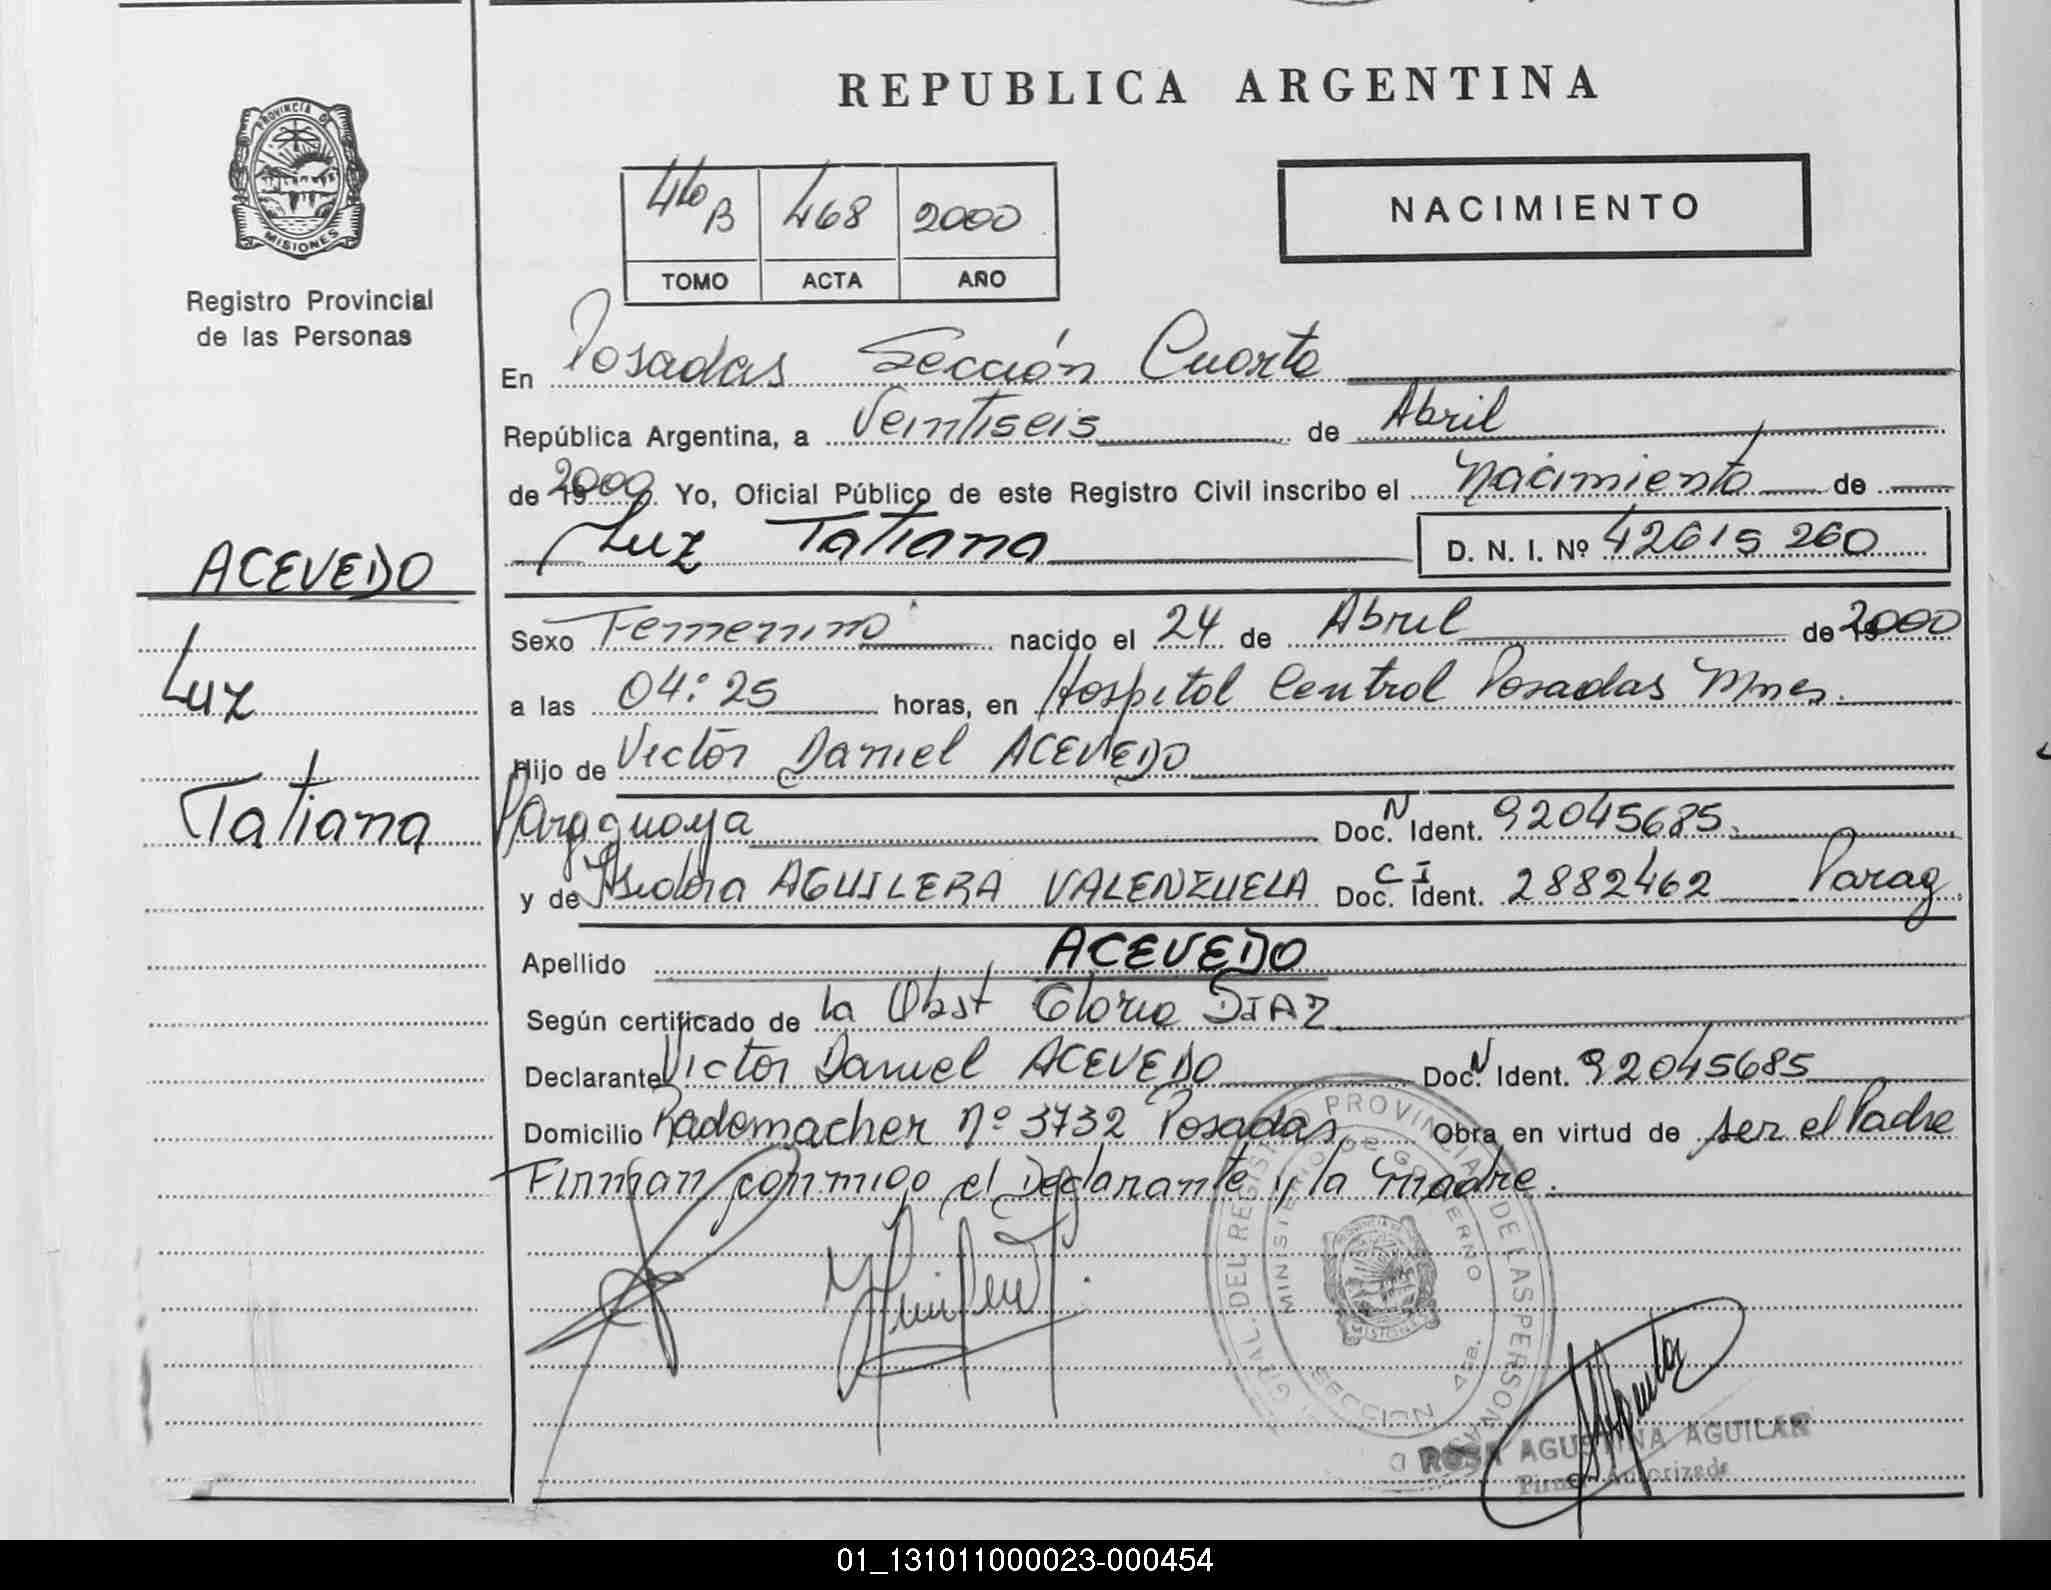 REPUBLICA ARGENTINA
PROVINCIA DE
MISIONES
Registro Provincial
de las Personas
B 468 2000
TOMO ACTA AÑO
NACIMIENTO
En Posadas Sección Cuarta
República Argentina, a Veintiseis de Abril
de 2000 Yo, Oficial Público de este Registro Civil inscribo el Nacimiento de
Luz Tatiana D. N. I. Nº 42615 260
ACEVEDO
Luz
Tatiana
Sexo Femenino nacido el 24 de Abril de 2000
a las 04:25 horas, en Hospital Central Posadas Mnes.
Hijo de Victor Daniel ACEVEDO
Paraguaya Doc. N Ident. 92045685
y de Isidora AGUILERA VALENZUELA Doc. C I Ident. 2882462 Parag.
Apellido ACEVEDO
Según certificado de la Obst Gloria DIAZ
Declarante Victor Daniel ACEVEDO Doc. N Ident. 92045685
Domicilio Rademacher Nº 3732 Posadas Obra en virtud de ser el Padre
Firman conmigo el Declarante y la madre.
GRAL. DEL REGISTRO PROVINCIAL DE LAS PERSONAS
MINISTERIO DE GOBIERNO
SECCION 4ta.
PROVINCIA DE
MISIONES
ROSA AGUSTINA AGUILAR
Firma Autorizada
01_131011000023-000454